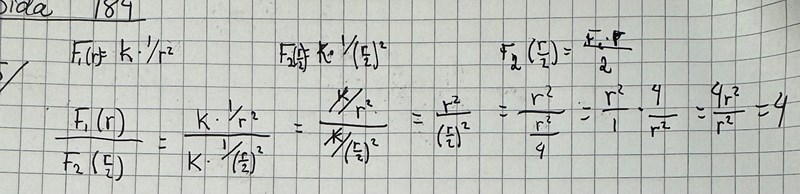 sida 184
F₁(r) = K · 1/r² F₂(r/2) = K · 1/(r/2)² F₂(r/2) = F₁·r/2
5/
F₁(r)/F₂(r/2) = (K · 1/r²)/(K · 1/(r/2)²) = (K/r²)/(K/(r/2)²) = r²/(r/2)² = r²/(r²/4) = r²/1 · 4/r² = 4r²/r² = 4